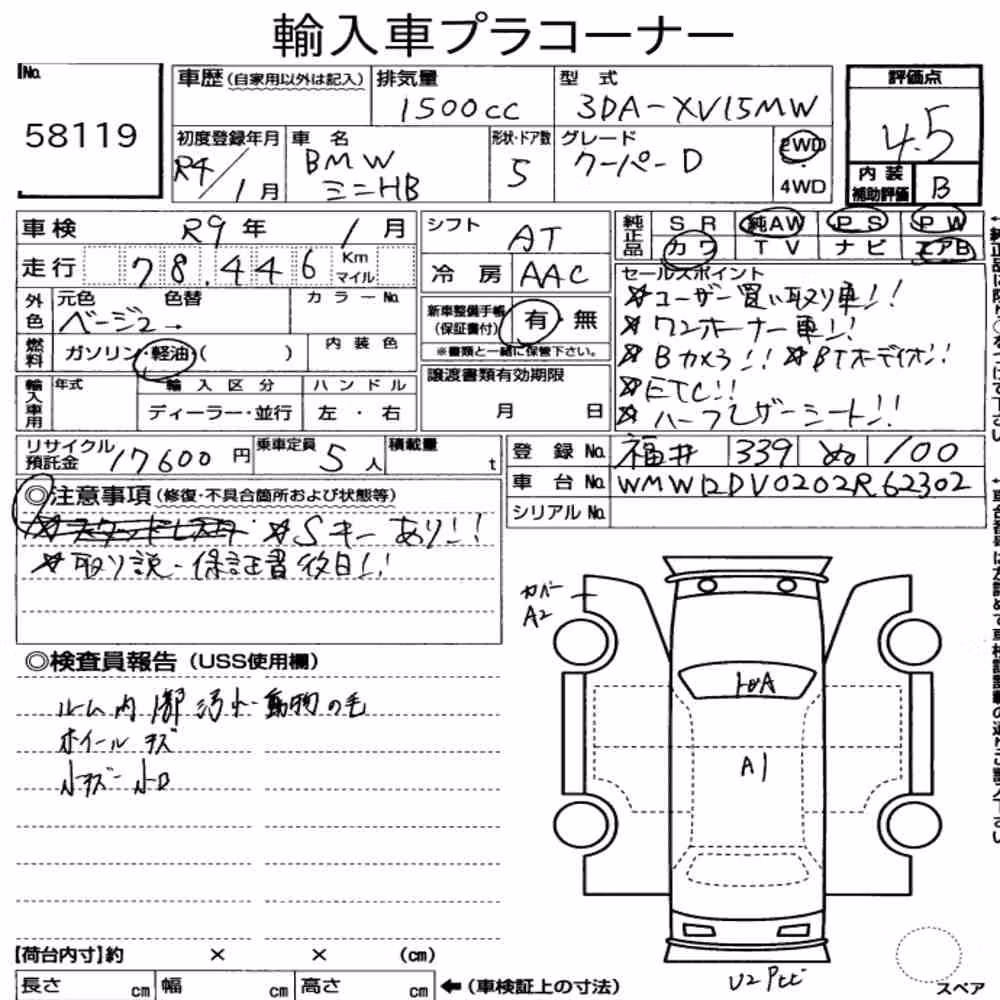 輸入車プラコーナー
No.
58119
車歴(自家用以外は記入)
排気量
1500cc
型 式
3DA-XV15MW
評価点
4.5
初度登録年月
R4/1月
車 名
BMW
ミニHB
形状・ドア数
5
グレード
クーパーD
2WD
4WD
内装
補助評価
B
車検 R9年 1月
シフト
AT
純正品
SR 純AW PS PW
カワ TV ナビ エアB
走行 78.446 Km
マイル
冷房 AAC
セールスポイント
☆ユーザー買い取り車!!
☆ワンオーナー車!!
☆Bカメラ!! ☆BTオーディオ!!
☆ETC!!
☆ハーフレザーシート!!
外色
元色 色替 カラーNo.
ベージ2→
新車整備手帳
(保証書付)
有・無
※書類と一緒に保管下さい。
燃料
ガソリン・軽油・( )
内装色
輸入車用
年式
輸入区分
ハンドル
ディーラー・並行
左・右
譲渡書類有効期限
月 日
リサイクル
預託金
17600円
乗車定員 5人
積載量 t
登録No. 福井 339 ぬ 100
車台No. WMW12DV0202R62302
シリアルNo.
◎注意事項(修復・不具合箇所および状態等)
☆Sキーあり!!
☆取り説・保証書後日!!
◎検査員報告(USS使用欄)
ルーム内 汚れ・動物の毛
ホイールキズ
小キズ 小凹
カバー
A2
A1
U2
【荷台内寸】約 × × (cm)
長さ cm 幅 cm 高さ cm
←(車検証上の寸法)
スペア